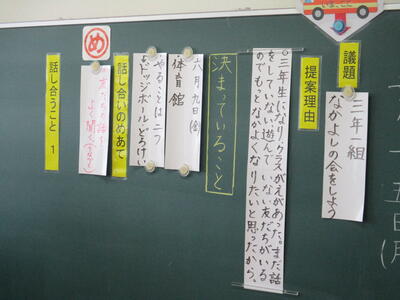 議題
三年一組
なかよしの会をしよう
提案理由
○三年生になり、クラスがえがあった。まだ話
をしていない、遊んでいない友だちがいる
のでもっとなかよくなりたいと思ったから。
決まっていること
六月九日(金)
体育館
やることは二つ
ドッジボール・どろけい
話し合いのめあて
め
よく聞く
話し合うこと 1
十五日